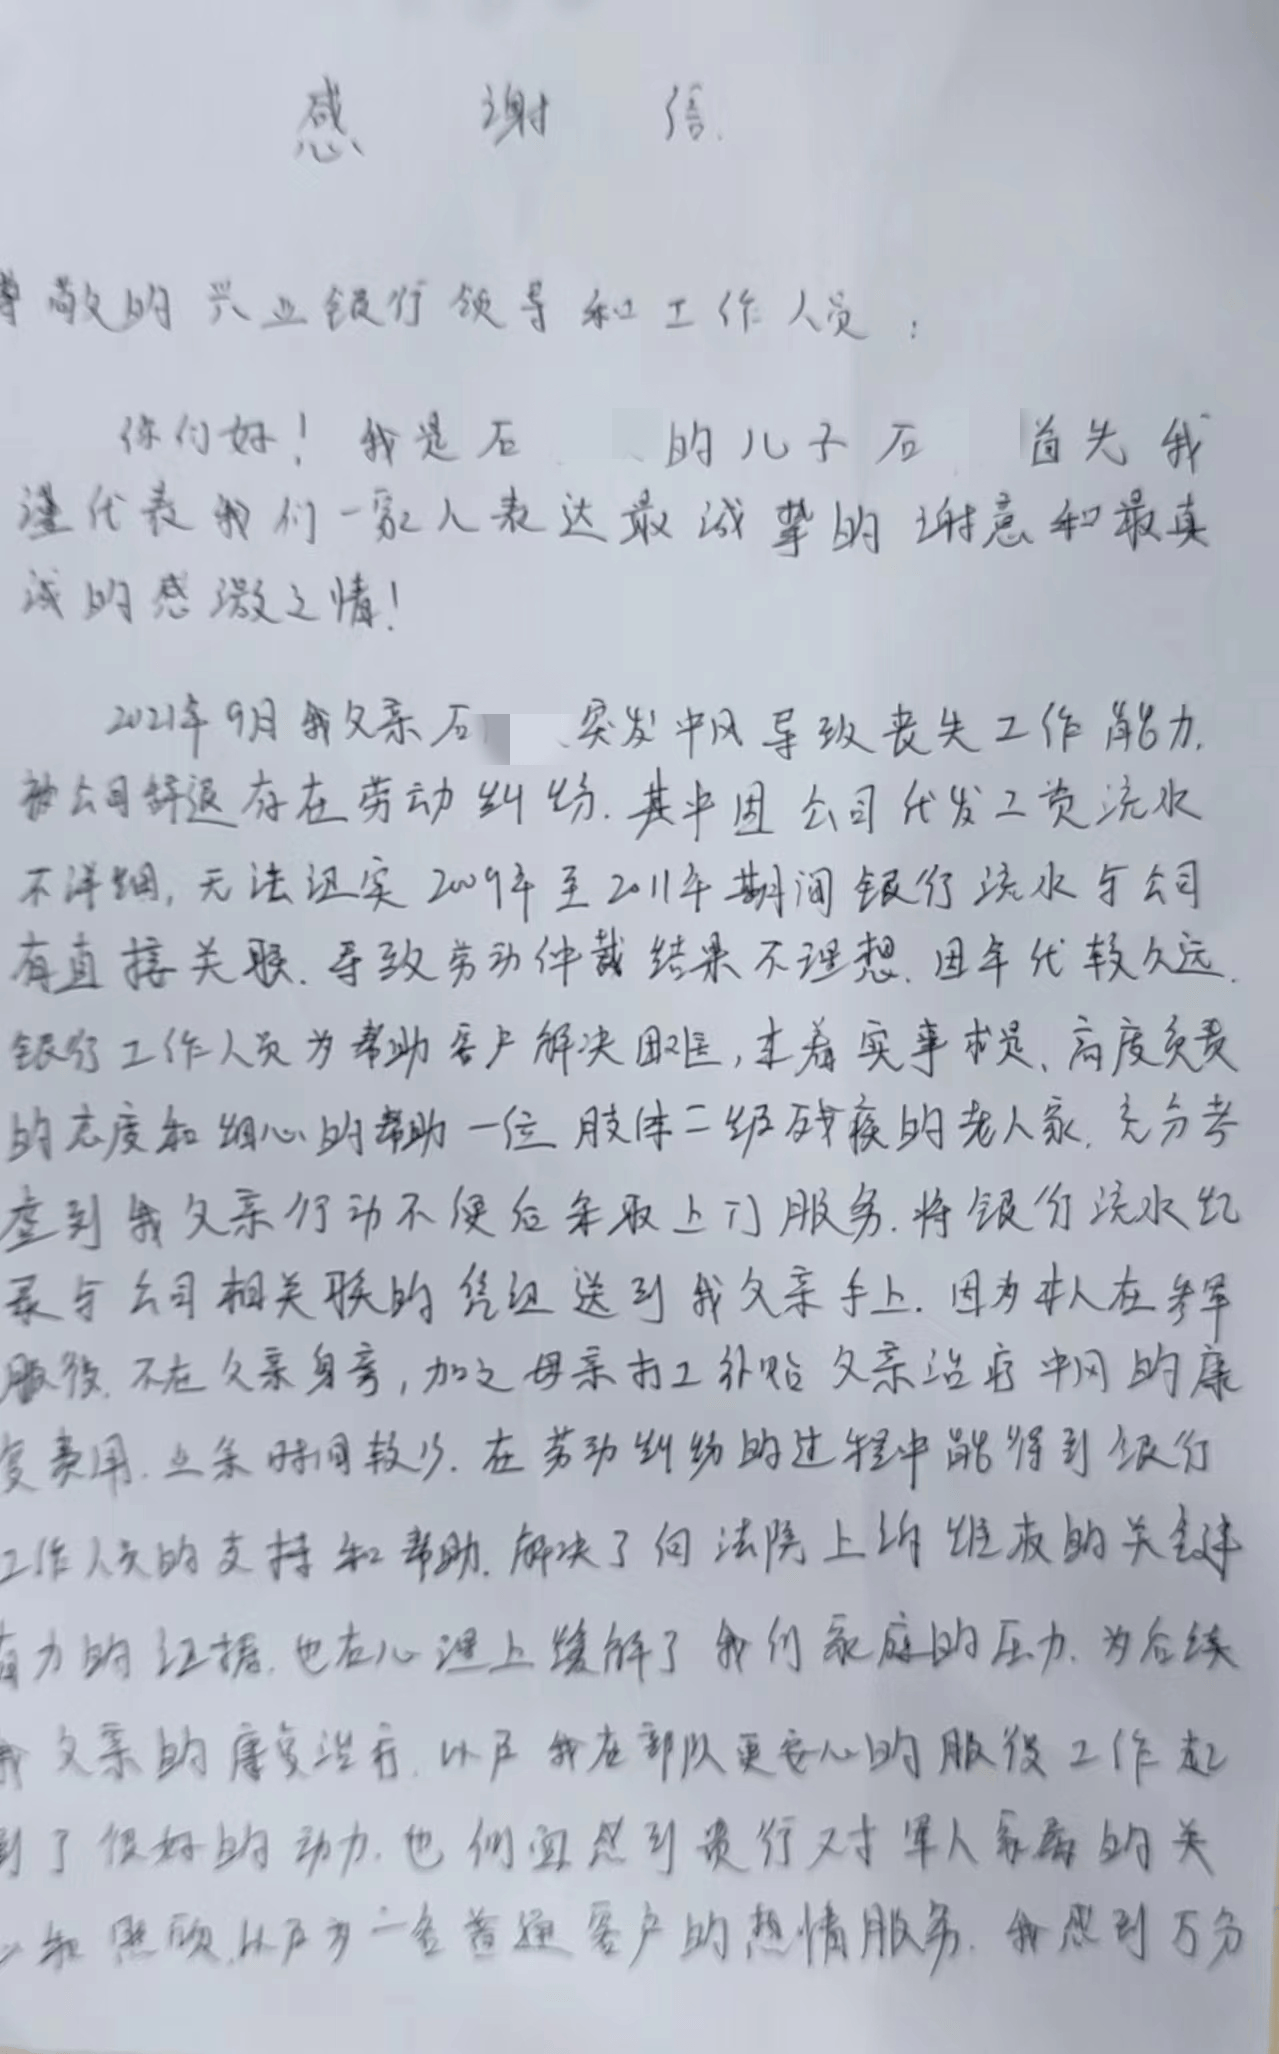 感谢信
尊敬的兴业银行领导和工作人员：
你们好！我是石 的儿子石 首先我
谨代表我们一家人表达最诚挚的谢意和最真
诚的感激之情！
2021年9月我父亲石 突发中风导致丧失工作能力,
被公司辞退存在劳动纠纷.其中因公司代发工资流水
不详细,无法证实2009年至2011年期间银行流水与公司
有直接关联.导致劳动仲裁结果不理想.因年代较久远.
银行工作人员为帮助客户解决困难,本着实事求是、高度负责
的态度和细心的帮助一位肢体二级残疾的老人家.充分考
虑到我父亲行动不便后采取上门服务.将银行流水纪
录与公司相关联的凭证送到我父亲手上.因为本人在参军
服役.不在父亲身旁,加之母亲打工补贴父亲治疗中风的康
复费用.业余时间较少.在劳动纠纷的过程中能得到银行
工作人员的支持和帮助.解决了向法院上诉维权的关键
有力的证据.也在心理上缓解了我们家庭的压力.为后续
我父亲的康复治疗.以及我在部队更安心的服役工作起
到了很好的动力.也侧面感到贵行对军人家属的关
心和照顾.以及为一名普通客户的热情服务.我感到万分